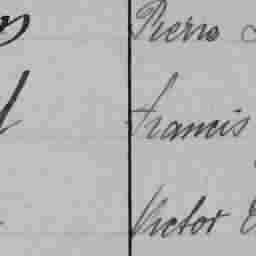 Pierre
Francis
Victor